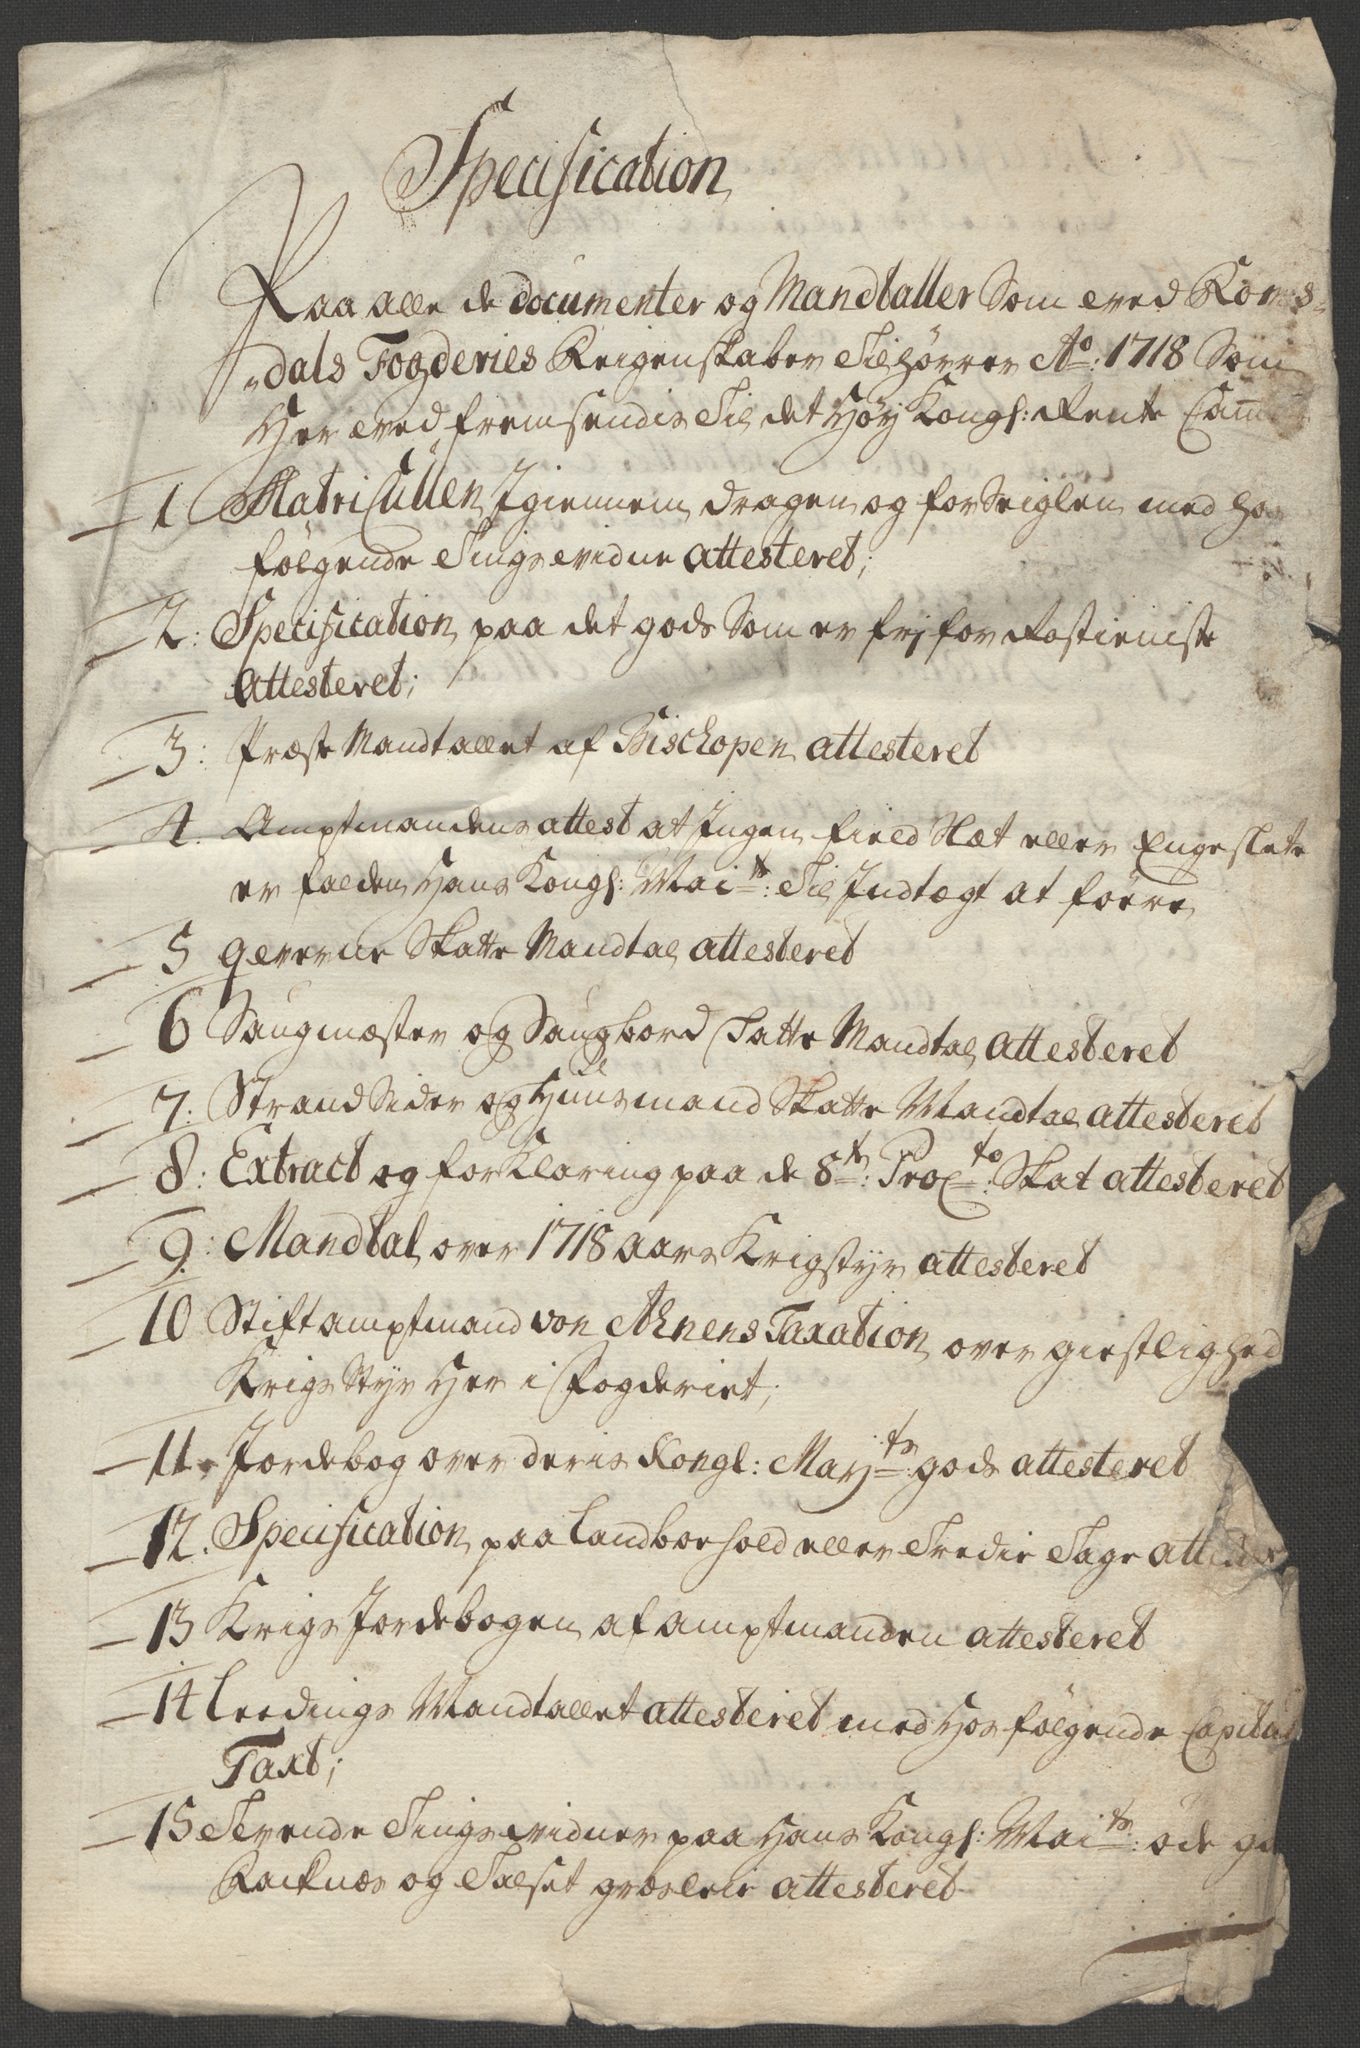 Specification
Paa alle de documenter og Mandtaller Som ved Roms-
dals Fogderies Reigenskaber Tilhörrer Ao: 1718 Som
Her ved fremsendis Til det Höy Kongl: Rente Cam
1 Matricullen Igiennem dragen og forSeiglen med ho
fölgende Tings vidne attesteret;
2: Specification paa det gods Som er frj for Rostieniste
Attesteret;
3: Præste Mandtallet af Bischopen attesteret
4. Amptmandens attest at Ingen field Slæt eller Engeslete
er falden Hans Kongl: Mai ts: Til Indtægt at före
5 qverne Skatte Mandtal attesteret
6 Saugmæster og Saugbord Skatte Mandtal attesteret
7: Strand Sider og Huusmand Skatte Mandtal attesteret
8: Extract og forklaring paa de 8te: Procto: Skat attesteret
9: Mandtal over 1718 aars Krigstyr attesteret
10 Stiftamptmand von Ahnens Taxation over giestlighed
Krigs Styr Her i fogderiet;
11. Jordebog over deris Kongl: Mayts: gods attesteret
12. Specification paa Landboehold eller Tredie Tage atteste
13 Krigs Jordebogen af amptmanden attesteret
14 Leedings Mandtallet attesteret med Hos fölgende Capitul
Taxt;
15 Tvende Tings vidner paa Hans Kongl: Maits: öde g
Racknes og Talset græsleie attesteret